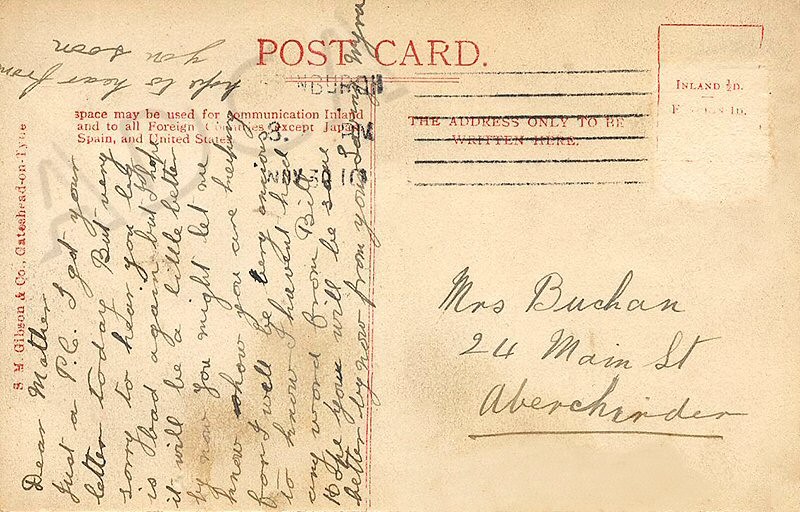 POST CARD.
space may be used for communication Inland
and to all Foreign Countries except Japan,
Spain, and United States
THE ADDRESS ONLY TO BE
WRITTEN HERE.
INLAND ½D.
FOREIGN 1D.
S. M. Gibson & Co., Gateshead-on-Tyne
EDINBURGH
NOV 30 10
Dear Mother
Just a P.C. I got your
letter today But very
sorry to hear you leg
is bad again but I hope
it will be a little better
by now you might let me
know how you are keeping
for I will be very anxious
to know I havent had
any word from Bill
hope you will be some
better by now from your loving Myra
hope to hear from
you soon
Mrs Buchan
24 Main St
Aberchirder